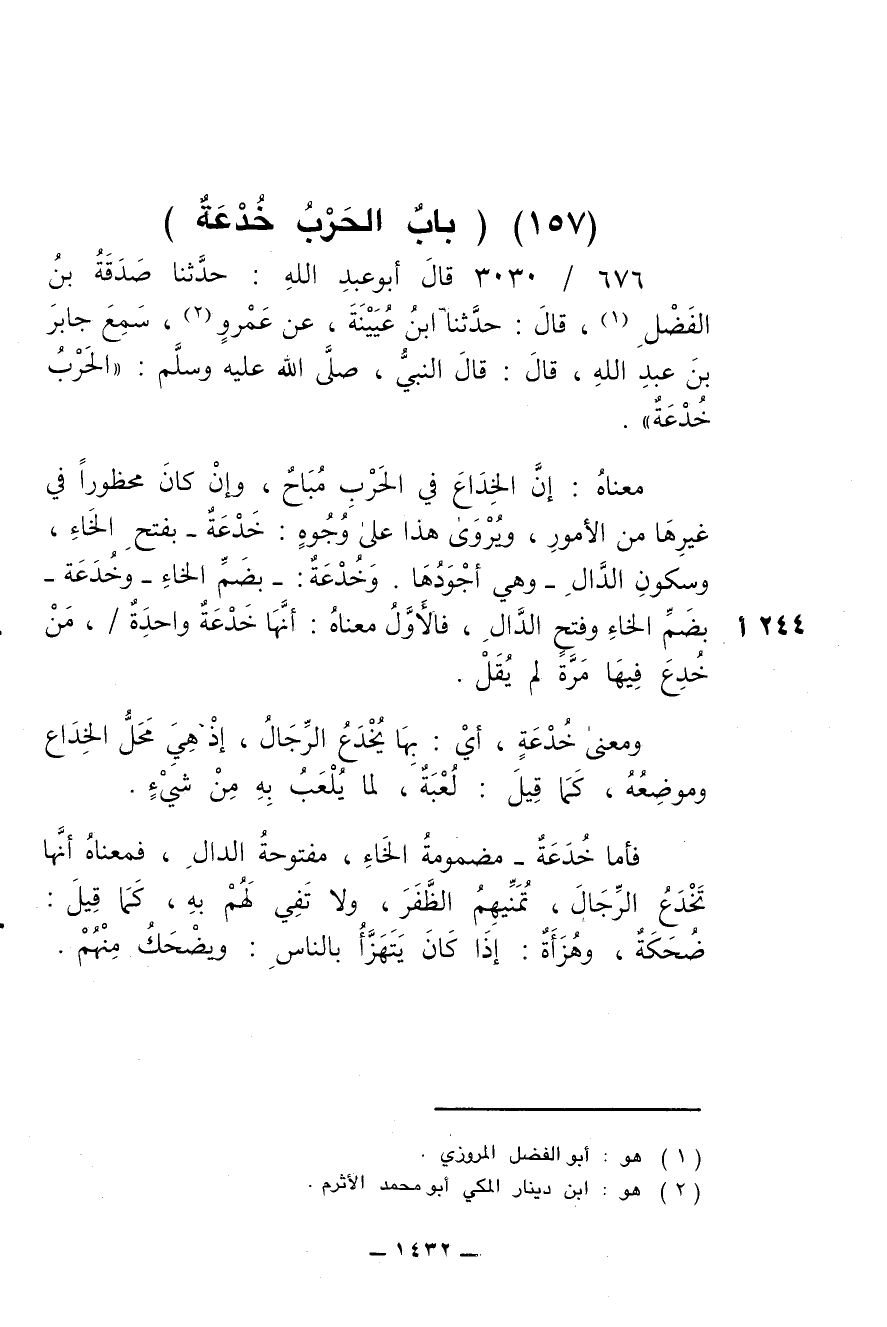 (١٥٧) ( بابٌ الحَرْبُ خُدْعَةٌ )
٦٧٦ / ٣٠٣٠ قالَ أبوعبدِ اللهِ : حدَّثنا صَدَقَةُ بنُ
الفَضْلِ (١) ، قالَ : حدَّثنا ابنُ عُيَيْنَةَ ، عن عَمْروٍ (٢) ، سَمِعَ جابرَ
بنَ عبدِ اللهِ ، قالَ : قالَ النبيُّ ، صلَّى الله عليه وسلَّم : «الحَرْبُ
خُدْعَةٌ» .
معناهُ : إنَّ الخِدَاعَ في الحَرْبِ مُبَاحٌ ، وإنْ كانَ محظوراً في
غيرِهَا من الأمورِ ، ويُرْوَىٰ هذا علىٰ وُجُوهٍ : خَدْعَةٌ ـ بفتحِ الخَاءِ ،
وسكونِ الدَّالِ ـ وهي أجْوَدُهَا . وَخُدْعَةٌ : ـ بضَمِّ الخاءِ ـ وخُدَعَة ـ
بضَمِّ الخاءِ وفتحِ الدَّالِ ، فالأَوَّلُ معناهُ : أنَّهَا خَدْعَةٌ واحدَةٌ / ، مَنْ
٢٤٤ أ
خُدِعَ فِيهَا مَرَّةً لم يُقَلْ .
ومعنىٰ خُدْعَةٍ ، أيْ : بِهَا يُخْدَعُ الرِّجَالُ ، إذْ هِيَ مَحَلُّ الخِدَاع
وموضِعُهُ ، كَمَا قِيلَ : لُعْبَةٌ ، لما يُلْعَبُ بِهِ مِنْ شيْءٍ .
فأما خُدَعَةٌ ـ مضمومةُ الخَاءِ ، مفتوحةُ الدالِ ، فمعناهُ أنَّها
تَخْدَعُ الرِّجَالَ ، تُمَنِّيهِمُ الظَّفَرَ ، ولا تَفِي لَهُمْ بِهِ ، كَمَا قِيلَ :
ضُحَكَةٌ ، وهُزَأَةٌ : إذَا كَانَ يَتَهَزَّأُ بالناسِ : ويضْحَكُ مِنْهُمْ .
(١) هو : أبو الفضل المروزي .
(٢) هو : ابن دينار المكي أبو محمد الأثرم .
ـ ١٤٣٢ ـ